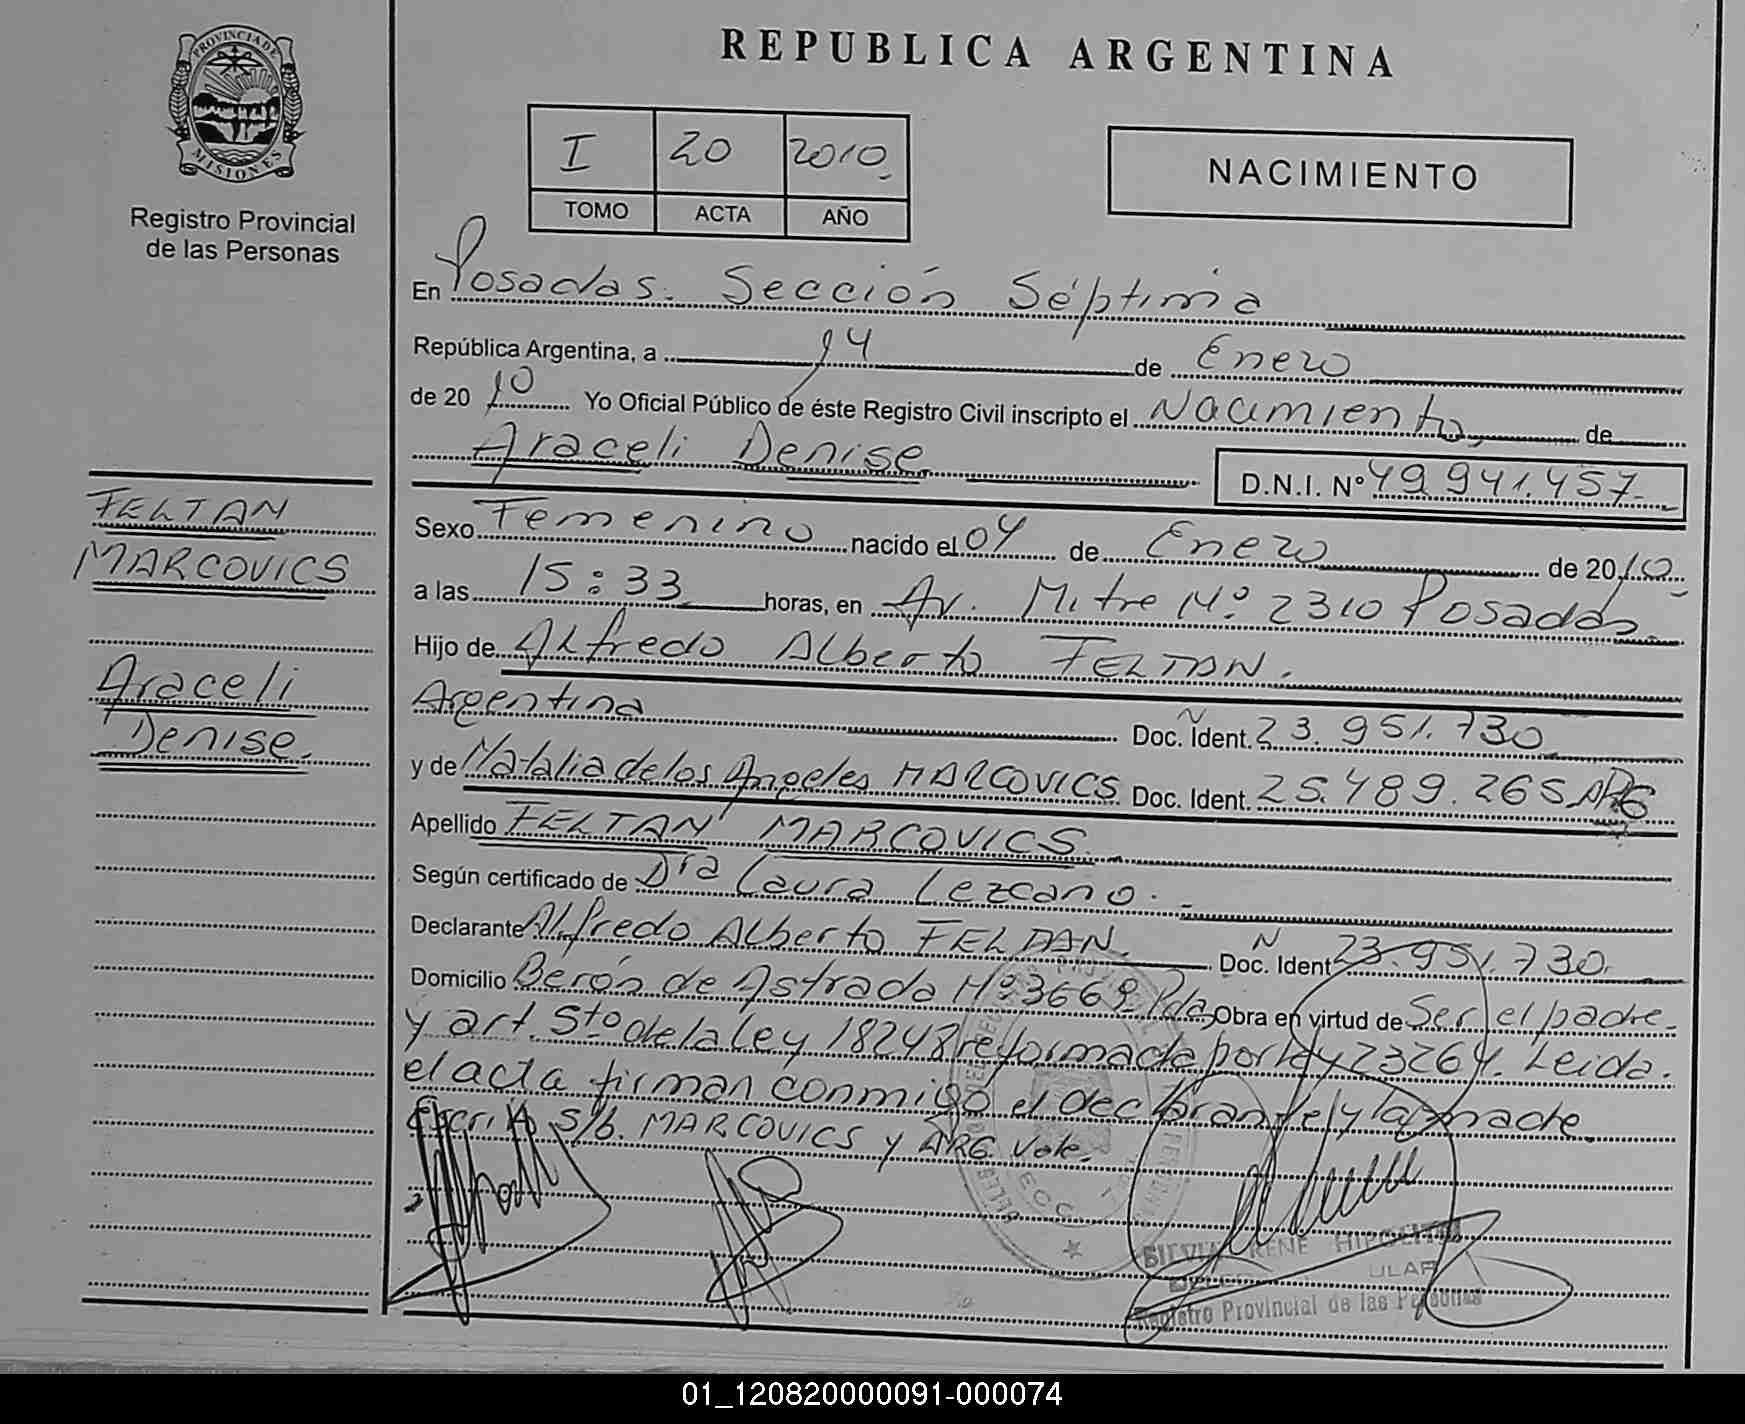 PROVINCIA DE
MISIONES
Registro Provincial
de las Personas
REPUBLICA ARGENTINA
I 20 2010
TOMO ACTA AÑO
NACIMIENTO
En Posadas. Sección Séptima
República Argentina, a 14 de Enero
de 2010 Yo Oficial Público de éste Registro Civil inscripto el Nacimiento, de
Araceli Denise
D.N.I. Nº 49.941.457
FELTAN
MARCOVICS
Araceli
Denise.
Sexo Femenino nacido el 04 de Enero de 2010
a las 15:33 horas, en Av. Mitre Nº 2310 Posadas
Hijo de Alfredo Alberto FELTAN.
Argentina Doc. Ident. 23.951.730
y de Natalia de los Angeles MARCOVICS Doc. Ident. 25.489.265 ARG
Apellido FELTAN MARCOVICS
Según certificado de Dra Laura Lezcano.
Declarante Alfredo Alberto FELTAN. Doc. Ident 23.951.730.
Domicilio Berón de Astrada Nº 3669 Pdas Obra en virtud de Ser el padre
y art. 5to de la ley 18248 reformada por ley 23264. Leida
el acta firman conmigo el declarante y la madre.
S/b. MARCOVICS y ARG. Vale.
RENE HIPOLITO
Registro Provincial de las Personas
01_120820000091-000074